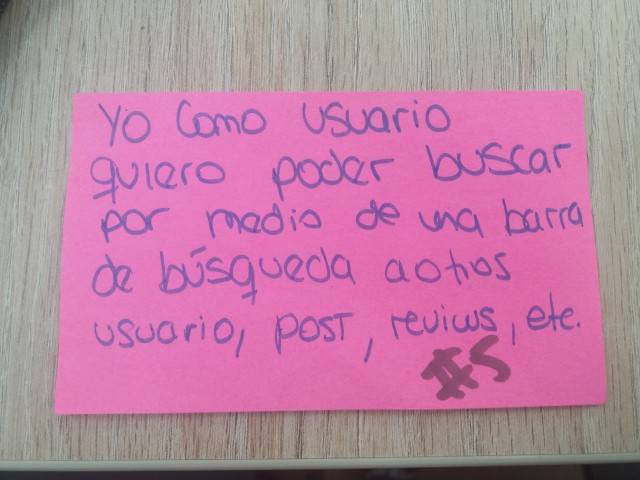 Yo Como usuario
quiero poder buscar
por medio de una barra
de búsqueda a otros
usuario, post, reviws, etc.
#5